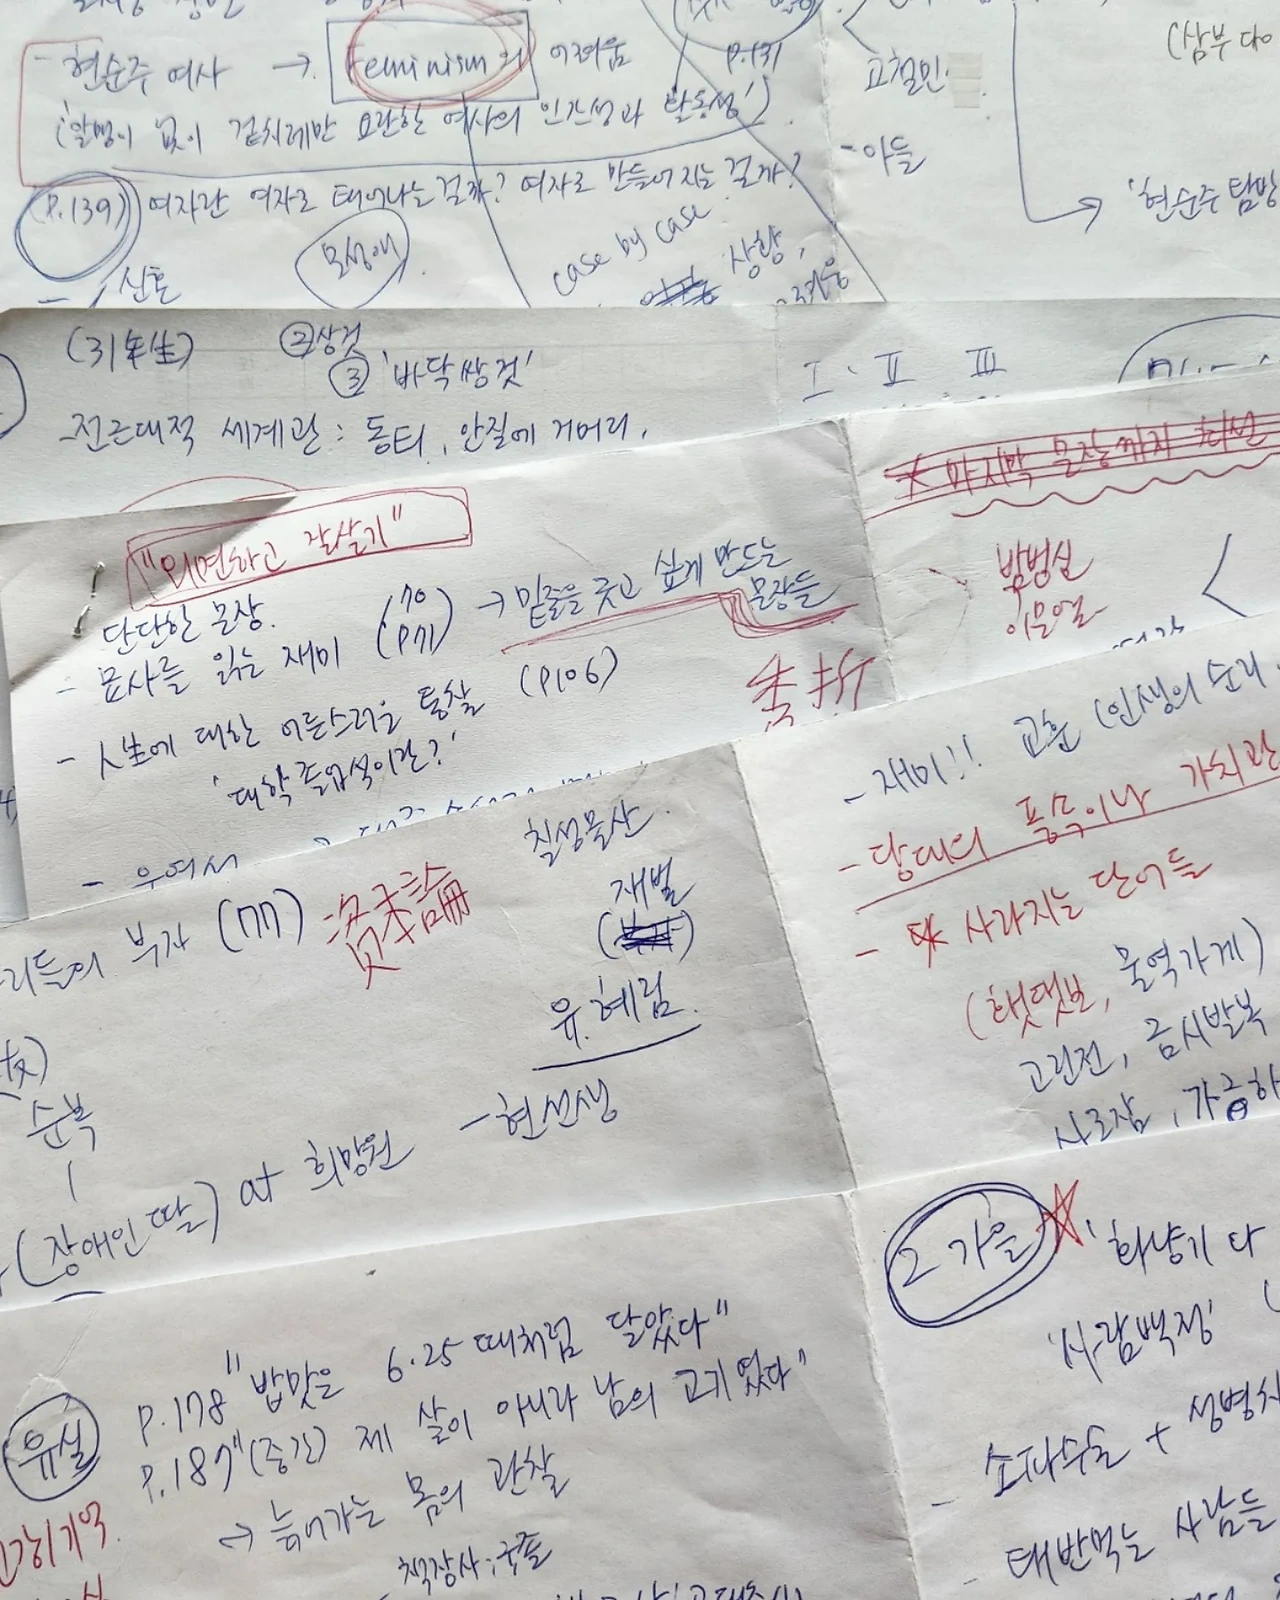 - 현순주 여사 → Feminism의 어려움 P.131
('알맹이 없이 겉치레만 요란한 여사의 인간성과 활동성')
(P.139) 여자란 여자로 태어나는 걸까? 여자로 만들어지는 걸까?
모성애
case by case
상황,
고철민
- 아들
'현순주 탐방
(31年生) ②상것
③ '바닥쌍것'
- 전근대적 세계관 : 동티, 안질에 거머리,
I · II III
* 마지막 문장까지
"외면하고 잘살기"
단단한 문장.
- 묘사를 읽는 재미 (70 P71) → 밑줄을 긋고 싶게 만드는 문장들
- 人生에 대한 어른스러운 통찰 (P106)
'대학 졸업식이란?'
이문열
- 재미!! 교훈 (인생의 순리
- 당대의 풍속이나 가치관
- * 사라지는 단어들
(횃댓보, 물역가게)
고린전, 금시발복
사로잠, 가긍하
리들의 부자 (P77) 資本論
칠성물산
재벌
유.혜림.
友)
순복
(장애인 딸) at 희망원 - 현선생
유실
P.178 "밥맛은 6·25 때처럼 달았다"
P.187 "(중간) 제 살이 아니라 남의 고기였다"
→ 늙어가는 몸의 관찰
책장사 : 국졸
2 가을 '화냥기 다
'사람백정'
- 소파수술 + 성병치
- 태반먹는 사람들